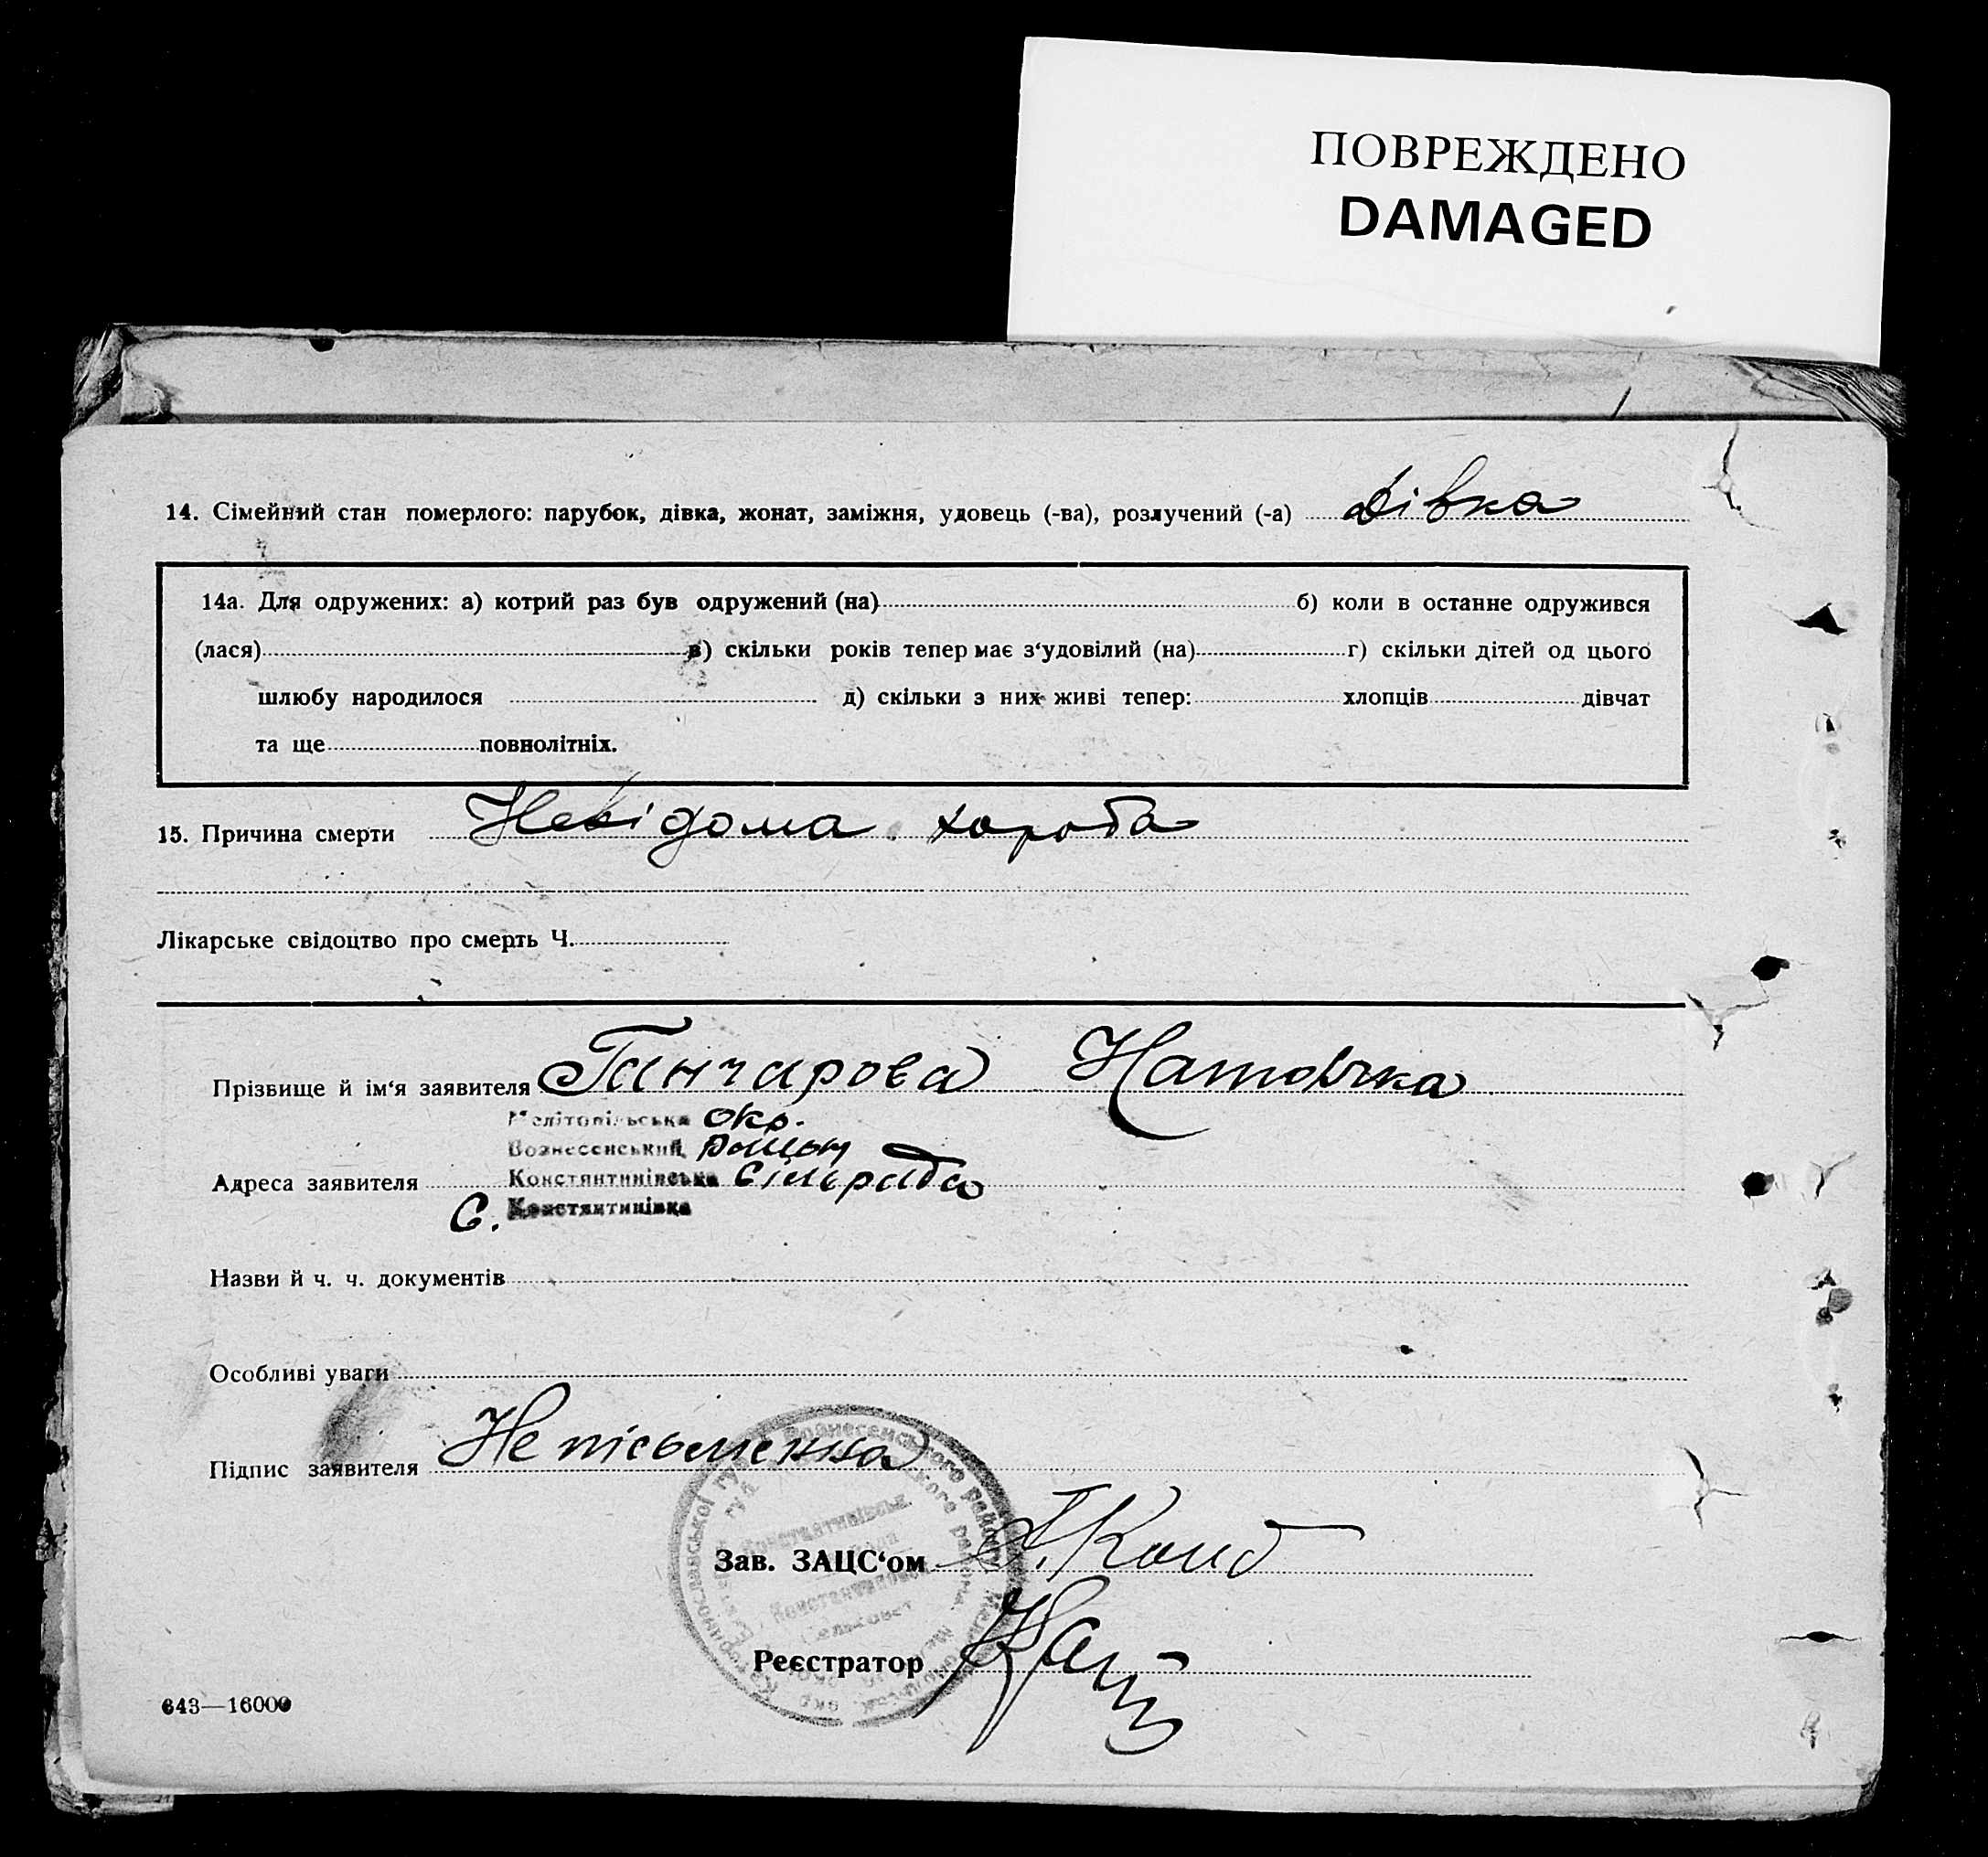 ПОВРЕЖДЕНО
DAMAGED
14. Сімейний стан померлого: парубок, дівка, жонат, заміжня, удовець (-ва), розлучений (-а) Дівка
14а. Для одружених: а) котрий раз був одружений (на) б) коли в останне одружився
(лася) в) скільки років тепер має з‘удовілий (на) г) скільки дітей од цього
шлюбу народилося д) скільки з них живі тепер: хлопців дівчат
та ще повнолітніх.
15. Причина смерти Невідома хороба
Лікарське свідоцтво про смерть Ч.
Прізвище й ім‘я заявителя Ганчарова
Мелітопільська окр.
Вознесенський район
Адреса заявителя Константинівська сільрада
с. Константинівка
Назви й ч. ч. документів
Особливі уваги
Підпис заявителя Не письменна
Зав. ЗАЦС‘ом
Реєстратор
643—16000